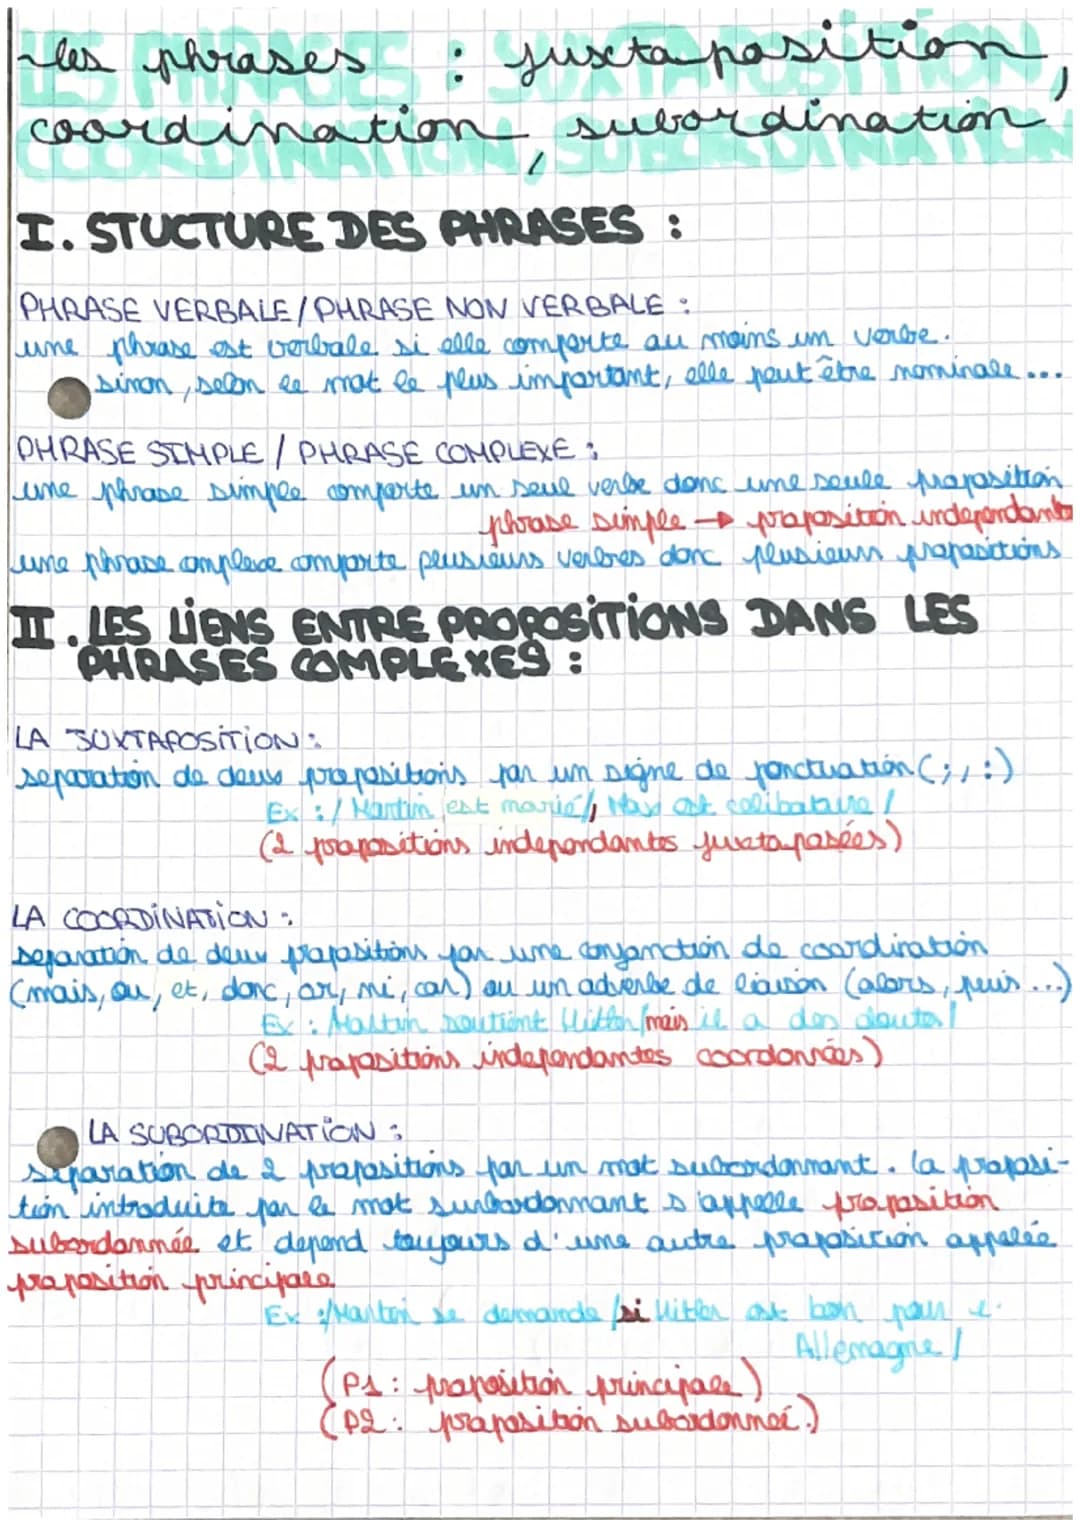 les phrases : juxtaposition,
coordination, subordination
I. STUCTURE DES PHRASES :
PHRASE VERBALE / PHRASE NON VERBALE :
une phrase est verbale si elle comporte au moins un verbe.
sinon, selon le mot le plus important, elle peut être nominale ...
PHRASE SIMPLE / PHRASE COMPLEXE :
une phrase simple comporte un seul verbe donc une seule proposition
phrase simple → proposition independante
une phrase complexe comporte plusieurs verbres donc plusieurs propositions
II. LES LIENS ENTRE PROPOSITIONS DANS LES
PHRASES COMPLEXES :
LA JUXTAPOSITION :
separation de deux propositions par un signe de ponctuation (; , :)
Ex : / Martin est marié /, Max est celibataire /
(2 propositions independantes juxtaposées)
LA COORDINATION :
separation de deux propositions par une conjonction de coordination
(mais, ou, et, donc, or, ni, car) ou un adverbe de liaison (alors, puis ...)
Ex : Martin soutient Hitler / mais il a des doutes /
(2 propositions independantes coordonnées)
LA SUBORDINATION :
séparation de 2 propositions par un mot subordonnant. la proposi-
tion introduite par le mot surbordonnant s'appelle proposition
subordonnée et depend toujours d'une autre proposition appelée
proposition principale
Ex : / Martin se demande / si Hitler est bon pour l'
Allemagne /
(P1 : proposition principale)
(P2 : proposition subordonneé.)